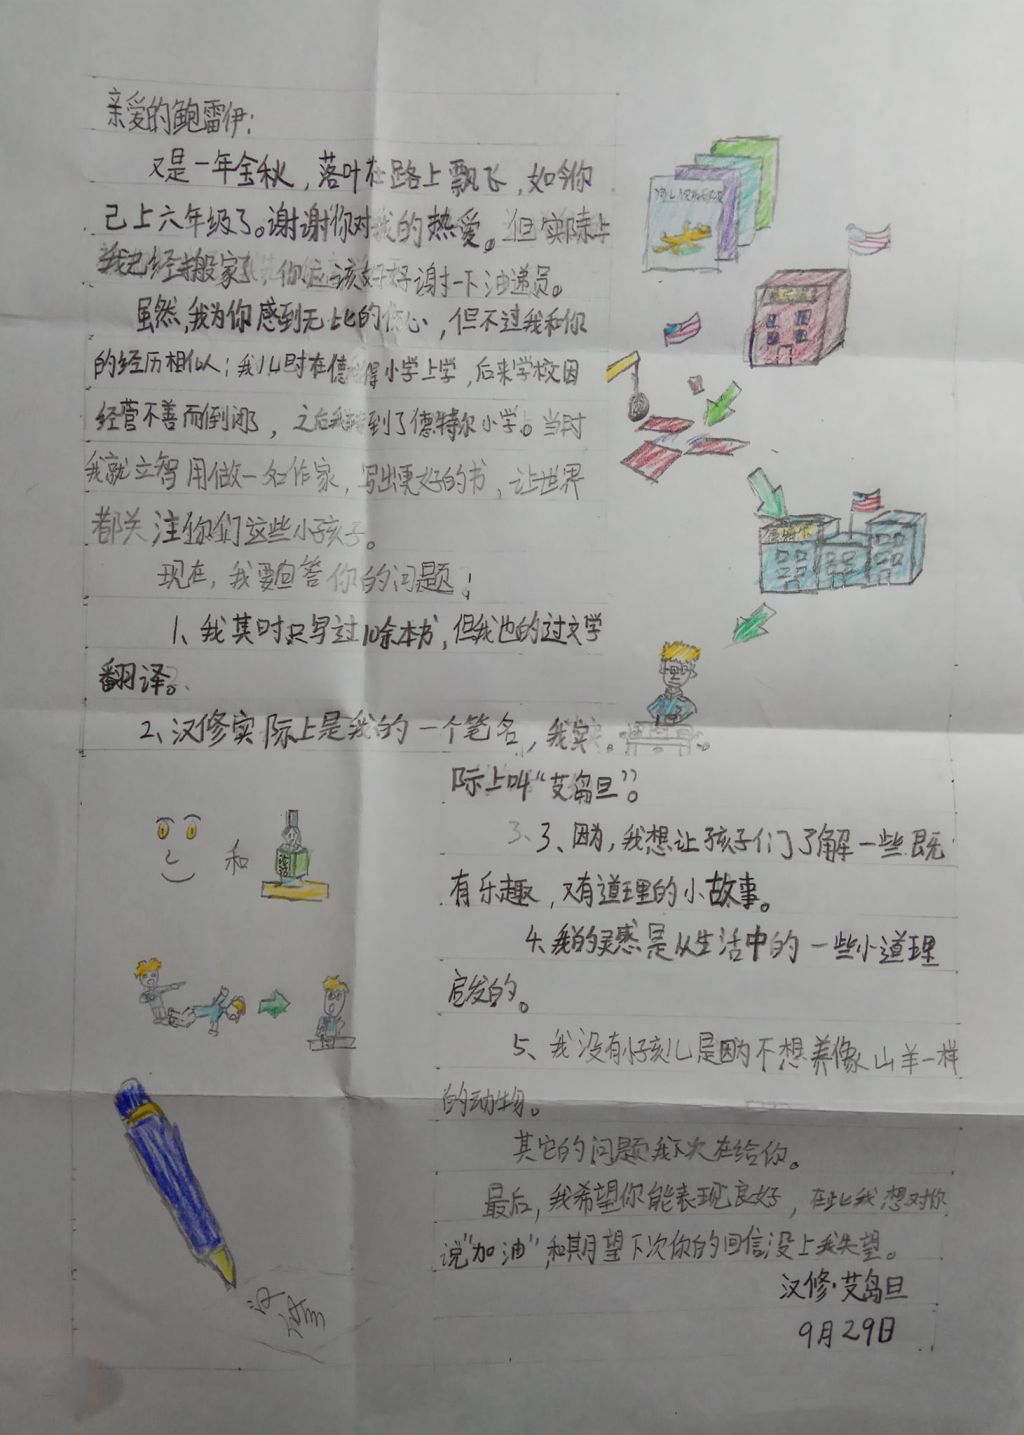 亲爱的鲍雷伊:
又是一年金秋，落叶在路上飘飞，如今你
己上六年级了。谢谢你对我的热爱。但实际上
我已经搬家了，你应该好好谢一下油递员。
虽然，我为你感到无比的伤心，但不过我和你
的经历相似；我儿时在德 得小学上学，后来学校因
经营不善而倒闭了，之后我 到了德特尔小学。当时
我就立智用做一名作家，写出更好的书，让世界
都关注你们这些小孩子。
现在，我要回答你的问题！
1、我其时只写过10余本书，但我也的过文学
翻译。
2、汉修实际上是我的一个笔名，我实
际上叫“艾岛旦”。
3、因为，我想让孩子们了解一些既
有乐趣，又有道理的小故事。
4、我的灵感是从生活中的一些小道理
启发的。
5、我没有小孩儿是因为不想养像山羊一样
的动物。
其它的问题我下次在给你。
最后，我希望你能表现良好，在此我想对你
说“加油”，和期望下次你的回信没上我失望。
汉修·艾岛旦
9月29日
和
汉修